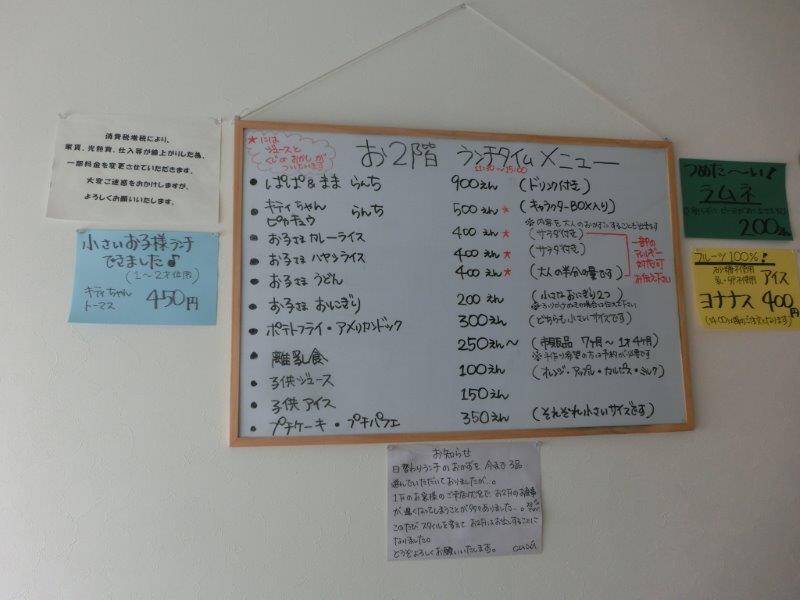 消費税増税により、
家賃、光熱費、仕入等が値上がりした為、
一部料金を変更させていただきます。
大変ご迷惑をおかけしますが、
よろしくお願いいたします。
小さいお子様ランチ
できました♪
(1〜2才位用)
キティちゃん
トーマス
450円
★には
ジュースと
くじのおかしが
ついています
お2階 ランチタイムメニュー
11:30〜15:00
● ぱぱ&まま らんち 900えん (ドリンク付き)
● キティちゃん
ピカチュウ らんち 500えん★ (キャラクターBOX入り)
※内容を大人のおかずにすることも出来ます
● お子さま カレーライス 400えん★ (サラダ付き)
● お子さま ハヤシライス 400えん★ (サラダ付き)
● お子さま うどん 400えん★ (大人の半分の量です)
一部の
アレルギー
対応可
お伝え下さい
● お子さま おにぎり 200えん (小さなおにぎり2つ)
● ポテトフライ・アメリカンドック 300えん (どちらも小さいサイズです)
● 離乳食 250えん〜 (市販品 7ヶ月〜1才4ヶ月)
※手作り希望の方は予約が必要です
● 子供ジュース 100えん (オレンジ・アップル・カルピス・ミルク)
● 子供アイス 150えん
● プチケーキ・プチパフェ 350えん (それぞれ小さいサイズです)
つめた〜い!
ラムネ
200
フルーツ100%!
砂糖不使用
乳・卵不使用 アイス
ヨナナス 400円
お知らせ
日替わりランチのおかずを、今まで3品
選んでいただいておりましたが…。
1Fのお客様のご来店状況で、お2Fのお食事
が遅くなってしまうことが多々ありました…。
このたびスタイルを変えてお2Fにお出しすることに
なりました。
どうぞよろしくお願いいたします。